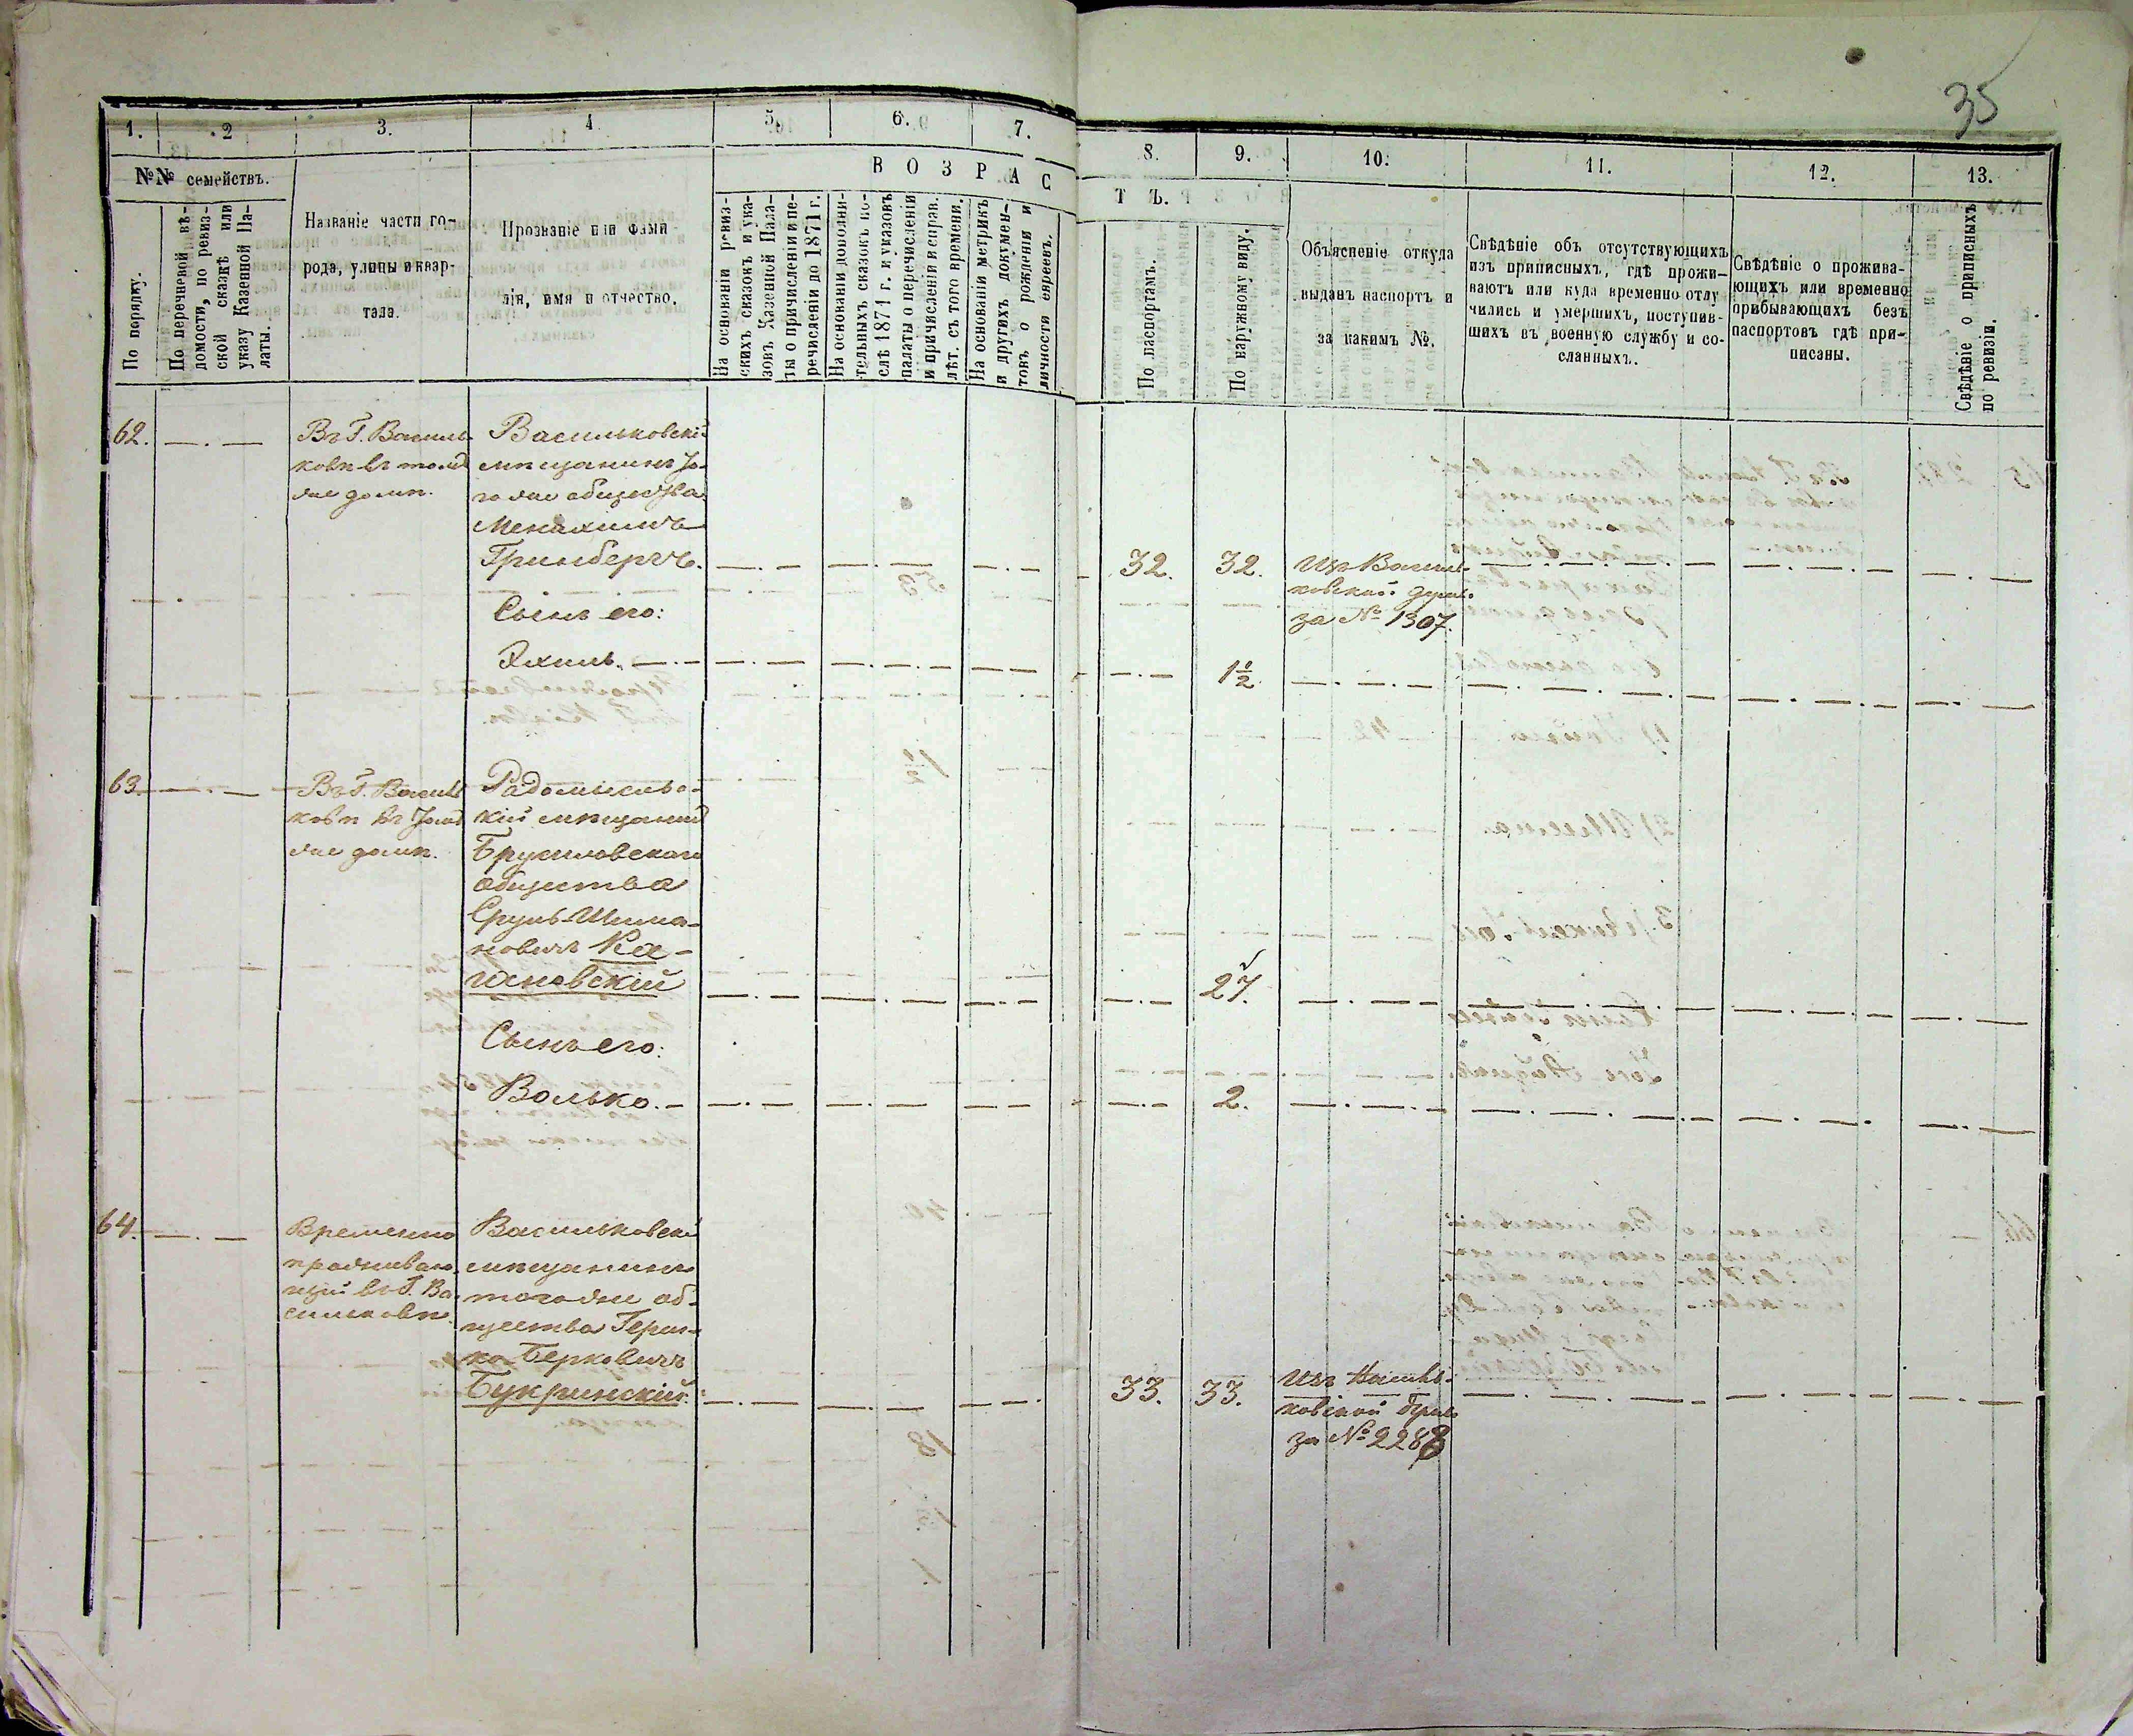 35
1. 2 3. 4. 5. 6. 7. 8. 9. 10. 11. 12. 13.
№№ семействъ.
По порядку.
По перечневой вѣ-
домости, по ревиз-
ской сказкѣ или
указу Казенной Па-
латы.
Названіе части го-
рода, улицы и квар-
тала.
Прозваніе или фами-
лія, имя и отчество.
ВОЗРАС
ТЪ.
На основаніи ревиз-
скихъ сказокъ и ука-
зовъ Казенной Пала-
ты о причисленіи и пе-
речисленіи до 1871 г.
На основаніи дополни-
тельныхъ сказокъ по-
слѣ 1871 г. и указовъ
палаты о перечисленіи
и причисленіи и справ.
лѣт. съ того времени.
На основаніи метрикъ
и другихъ докумен-
товъ о рожденіи и
личности евреевъ.
По паспортамъ.
По наружному виду.
Объясненіе откуда
выданъ паспортъ и
за какимъ №.
Свѣдѣніе объ отсутствующихъ
изъ приписныхъ, гдѣ прожи-
ваютъ или куда временно отлу
чились и умершихъ, поступив-
шихъ въ военную службу и со-
сланныхъ.
Свѣдѣніе о прожива-
ющихъ или временно
прибывающихъ безъ
паспортовъ гдѣ при-
писаны.
Свѣдѣніе о приписныхъ
по ревизіи.
62.
Въ Г. Василь-
ковѣ въ томъ
же домѣ.
Васильковскій
мѣщанинъ то-
го же общества
Менахимъ
Гринбергъ.
32. 32.
Изъ Василь-
ковской думы
за № 1307.
Сынъ его:
Яхиль.
1½.
63.
Въ Г. Василь
ковѣ въ томъ
же домѣ.
Радомысльс-
кій мѣщанинъ
Брусиловскаго
общества
Сруль Шима-
новичъ Ка-
гановскій
27.
Сынъ его:
Волько.
2.
64.
Временно
проживаю-
щій въ Г. Ва-
сильковѣ.
Васильковскій
мѣщанинъ
того же об-
щества Герш-
ко Берковичъ
Букринскій.
33. 33.
Изъ Василь-
ковской думы
за № 2288